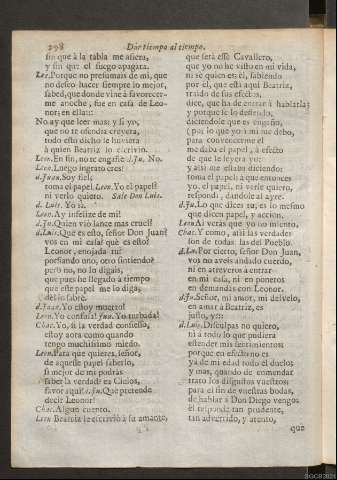 298
Dàr tiempo al tiempo.
sin que à la tabla me asiera,
y sin que el fuego apagàra.
Leo. Porque no presumais de mi, que
no deseo hacer siempre lo mejor,
sabed, que donde vine à favorecer-
me anoche, fue en casa de Leo-
nor; en ella::
No ay que leer mas; y si yo,
que no te osendia creyera,
todo esto dicho le huviera
à quien Beatriz lo escrivio.
Leon. En fin, no te engañè. d. Ju. No.
Leon. Luego ingrato eres!
d. Juan. Soy fiel;
toma el papel. Leon. Yo el papel?
ni verlo quiero. Sale Don Luis.
d. Luis. Yo sì.
Leon. Ay infelize de mi!
d. Ju. Quien viò lance mas cruel?
d. Luis. Què es esto, señor Don Juan?
vos en mi casa? què es esto?
Leonor, enojada tù?
porfiando uno, otro sintiendo?
pero no, no lo digais,
que pues he llegado à tiempo
que este papel me lo diga,
dèl lo sabrè.
d. Juan. Yo estoy muerto!
Leon. Yo confusa! Juan. Yo turbada!
Chac. Yo, si la verdad confiesso,
estoy aora como quando
tengo muchissimo miedo.
Leon. Para què quieres, señor,
de aquesse papel saberlo,
si mejor de mi podràs
saber la verdad? ea Cielos,
favor aqui! d. Ju. Què pretende
decir Leonor?
Chac. Algun cuento.
Leon. Beatriz le escriviò à su amante,
que serà esse Cavallero,
que yo no he visto en mi vida,
ni sè quien es: èl, sabiendo
por el, que està aqui Beatriz,
traido de sus efectos,
dice, que ha de entrar à hablarla;
y porque le lo defiendo,
diciendole que es engaño,
( por lo que yo à mi me debo,
para convencerme el
me daba el papel, à efecto
de que le leyera yo:
y assi me estaba diciendo:
toma el papel; à que entonces
yo, el papel, ni verle quiero,
respondì, dandole al ayre.
d. Ju. Lo que dices tu, es lo mesmo
que dicen papel, y accion.
Leon. Ai veràs que yo no miento.
Chac. Y como, assi las verdades
son de todas las del Pueblo.
d. Lu. Por cierto, señor Don Juan,
vos no aveis andado cuerdo,
ni en atreveros à entrar
en mi casa, ni en poneros
en demandas con Leonor.
d. Ju. Señor, mi amor, mi desvelo,
en amar à Beatriz, es
justo, y::
d. Luis. Disculpas no quiero,
ni à todo lo que pudiera
estender mis sentimientos;
porque en efecto no es
ya de mi edad todo el duelo;
y mas, quando de enmendar
trato los disgustos vuestros;
para el fin de vuestras bodas,
de hablar à Don Diego vengo;
èl responde tan prudente,
tan advertido, y atento,
que